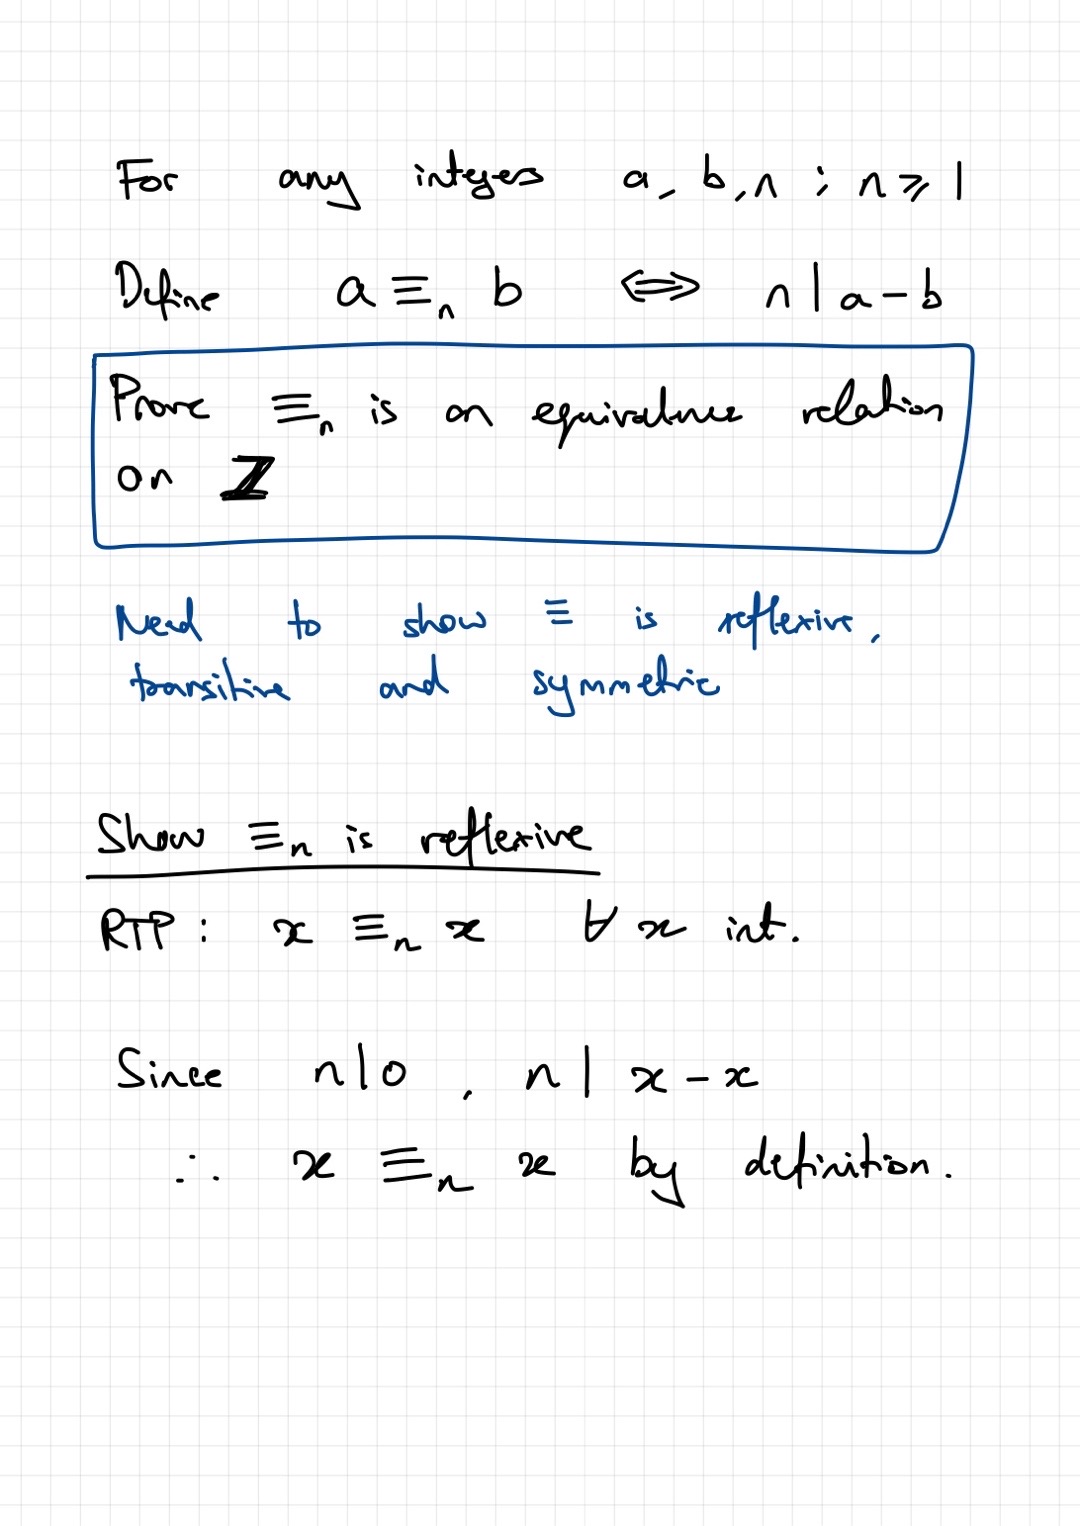 For any integers a, b, n ; n ⩾ 1
Define a ≡ₙ b ⟺ n | a - b
Prove ≡ₙ is an equivalence relation
on ℤ
Need to show ≡ is reflexive,
transitive and symmetric
Show ≡ₙ is reflexive
RTP : x ≡ₙ x ∀ x int.
Since n|0 , n | x - x
∴ x ≡ₙ x by definition.